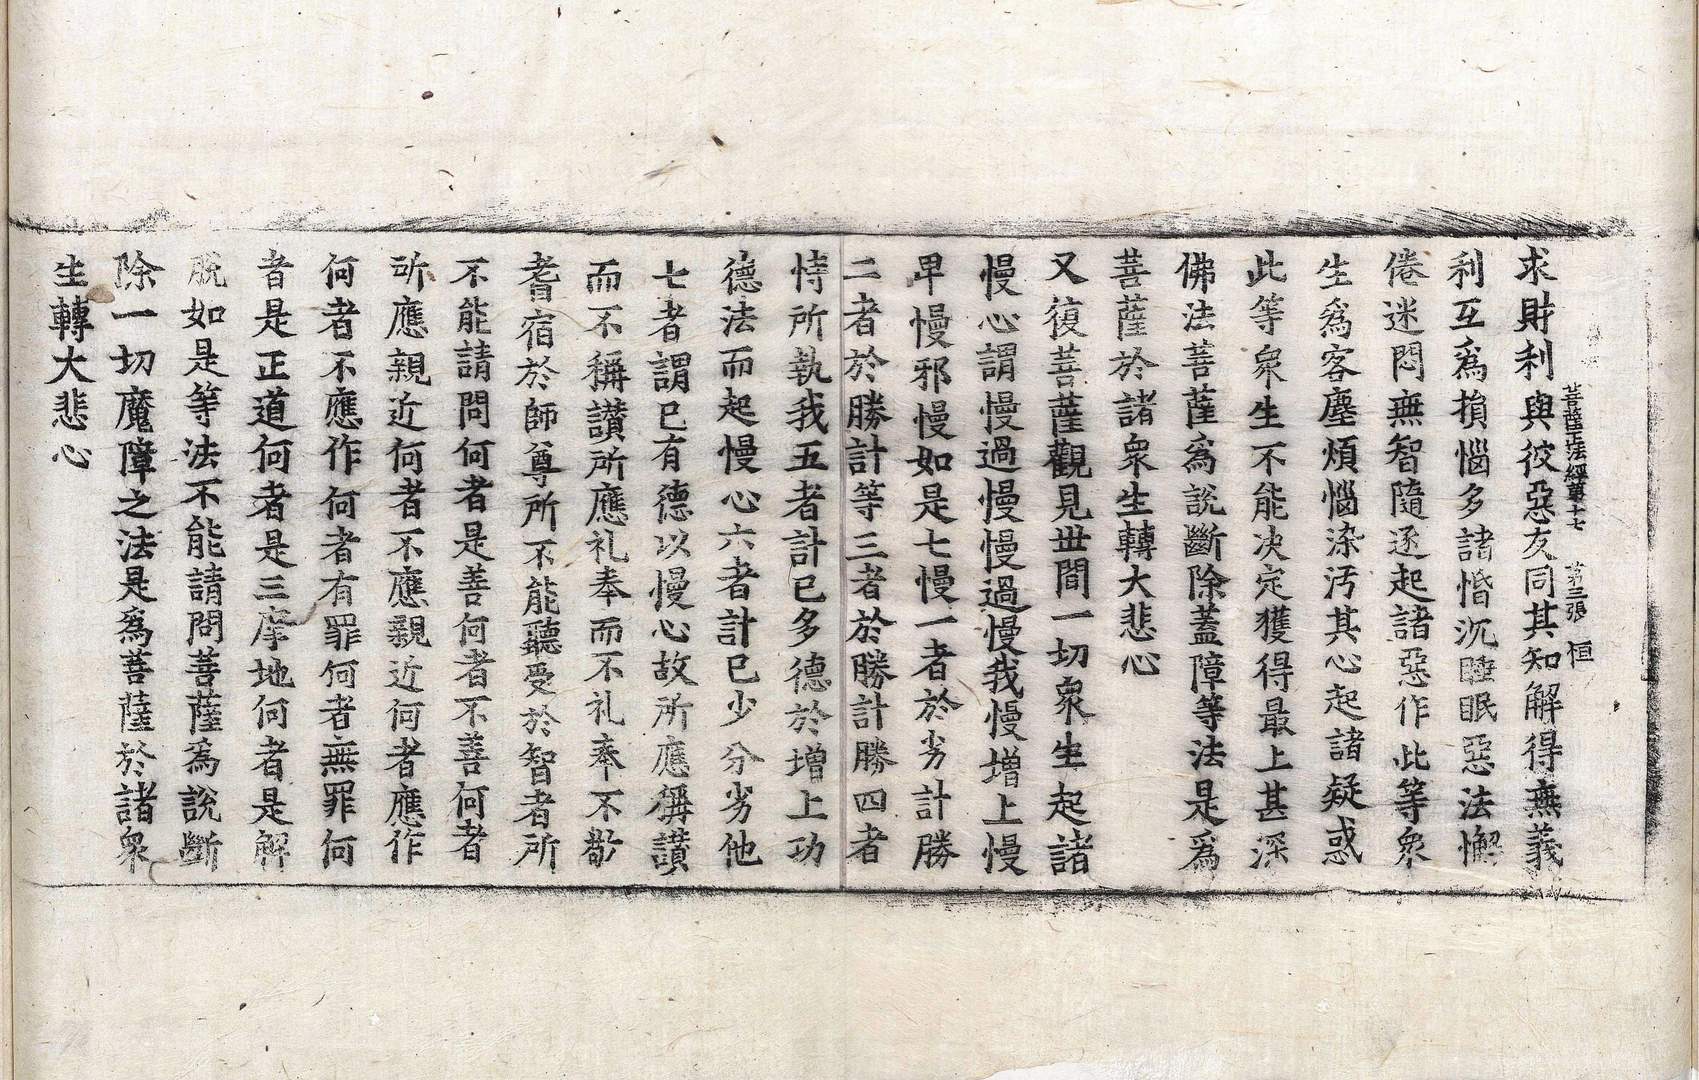 菩薩正法經第十七 第三張 恒
求財利與彼惡友同其知解得無義
利互爲損惱多諸惛沉睡眠惡法懈
倦迷悶無智隨逐起諸惡作此等衆
生爲客塵煩惱染汚其心起諸疑惑
此等衆生不能决定獲得最上甚深
佛法菩薩爲說斷除蓋障等法是爲
菩薩於諸衆生轉大悲心
又復菩薩觀見世間一切衆生起諸
慢心謂慢過慢慢過慢我慢增上慢
卑慢邪慢如是七慢一者於劣計勝
二者於勝計等三者於勝計勝四者
恃所執我五者計已多德於增上功
德法而起慢心六者計已少分劣他
七者謂已有德以慢心故所應稱讃
而不稱讃所應礼奉而不礼奉不敬
耆宿於師尊所不能聽受於智者所
不能請問何者是善何者不善何者
所應親近何者不應親近何者應作
何者不應作何者有罪何者無罪何
者是正道何者是三摩地何者是解
脫如是等法不能請問菩薩爲說斷
除一切魔障之法是爲菩薩於諸衆
生轉大悲心